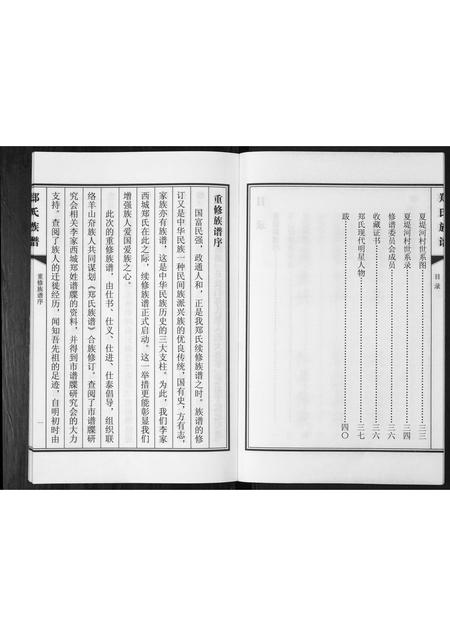 郑氏族谱
目录
夏堤河村世系图 三三
夏堤河村世系录 三四
修谱委员会成员 三六
收藏证书 三六
郑氏现代明星人物 三七
跋 四〇
重修族谱序
国富民强，政通人和，正是我郑氏续修族谱之时。族谱的修
订又是中华民族一种民间族派兴族的优良传统，国有史，方有志，
家族亦有族谱，这是中华民族历史的三大支柱。为此，我们李家
西城郑氏在此之际，续修族谱正式启动。这一举措更能彰显我们
增强族人爱国爱族之心。
此次的重修族谱，由仕书、仕义、仕进、仕泰倡导，组织联
络羊山夼族人共同谋划《郑氏族谱》合族修订。查阅了市谱牒研
究会相关李家西城郑姓谱牒的资料，并得到市谱牒研究会的大力
支持。查阅了族人的迁徙经历，闻知吾先祖的足迹，自明初时由
郑氏族谱
重修族谱序
一